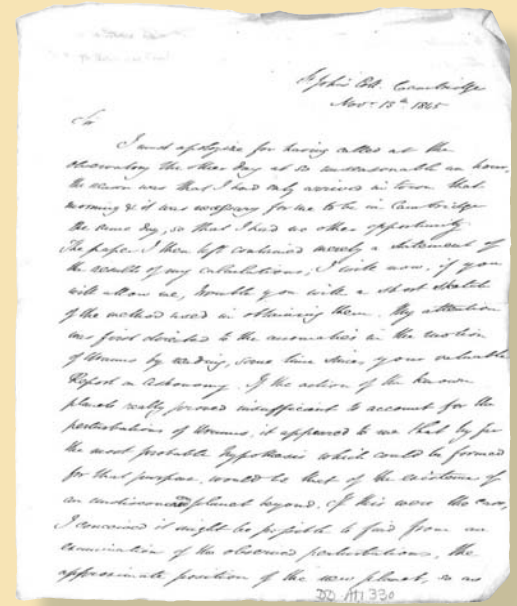 St John's Coll. Cambridge
Nov. 13th 1845
Sir
I must apologize for having called at the
observatory the other day at so unseasonable an hour,
the reason was that I had only arrived in town that
morning & it was necessary for me to be in Cambridge
the same day, so that I had no other opportunity
The paper I then left contained merely a statement of
the results of my calculations; I write now, if you
will allow me, trouble you with a short sketch
of the method used in obtaining them. My attention
was first directed to the anomalies in the motion
of Uranus by reading, some time since, your valuable
Report on Astronomy. If the action of the known
planets really proved insufficient to account for the
perturbations of Uranus, it appeared to me that by far
the most probable hypothesis which could be formed
for that purpose, would be that of the existence of
an undiscovered planet beyond. If this were the case,
I conceived it might be possible to find from an
examination of the observed perturbations, the
approximate position of the new planet, so as
DD.AH1 330